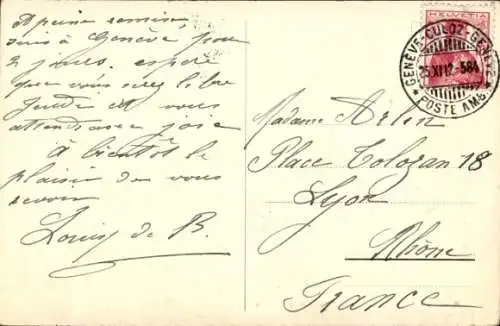 A peine remise
suis à Genève pour
2 jours. espère
que vous serez libre
jeudi et vous
attends avec joie
à bientôt le
plaisir de vous
revoir
Louis de B.
HELVETIA
GENÈVE-CULOZ-GENÈVE
25.XI.12-584
POSTE AMB.
Madame Arlin
Place Tolozan 18
Lyon
Rhône
France